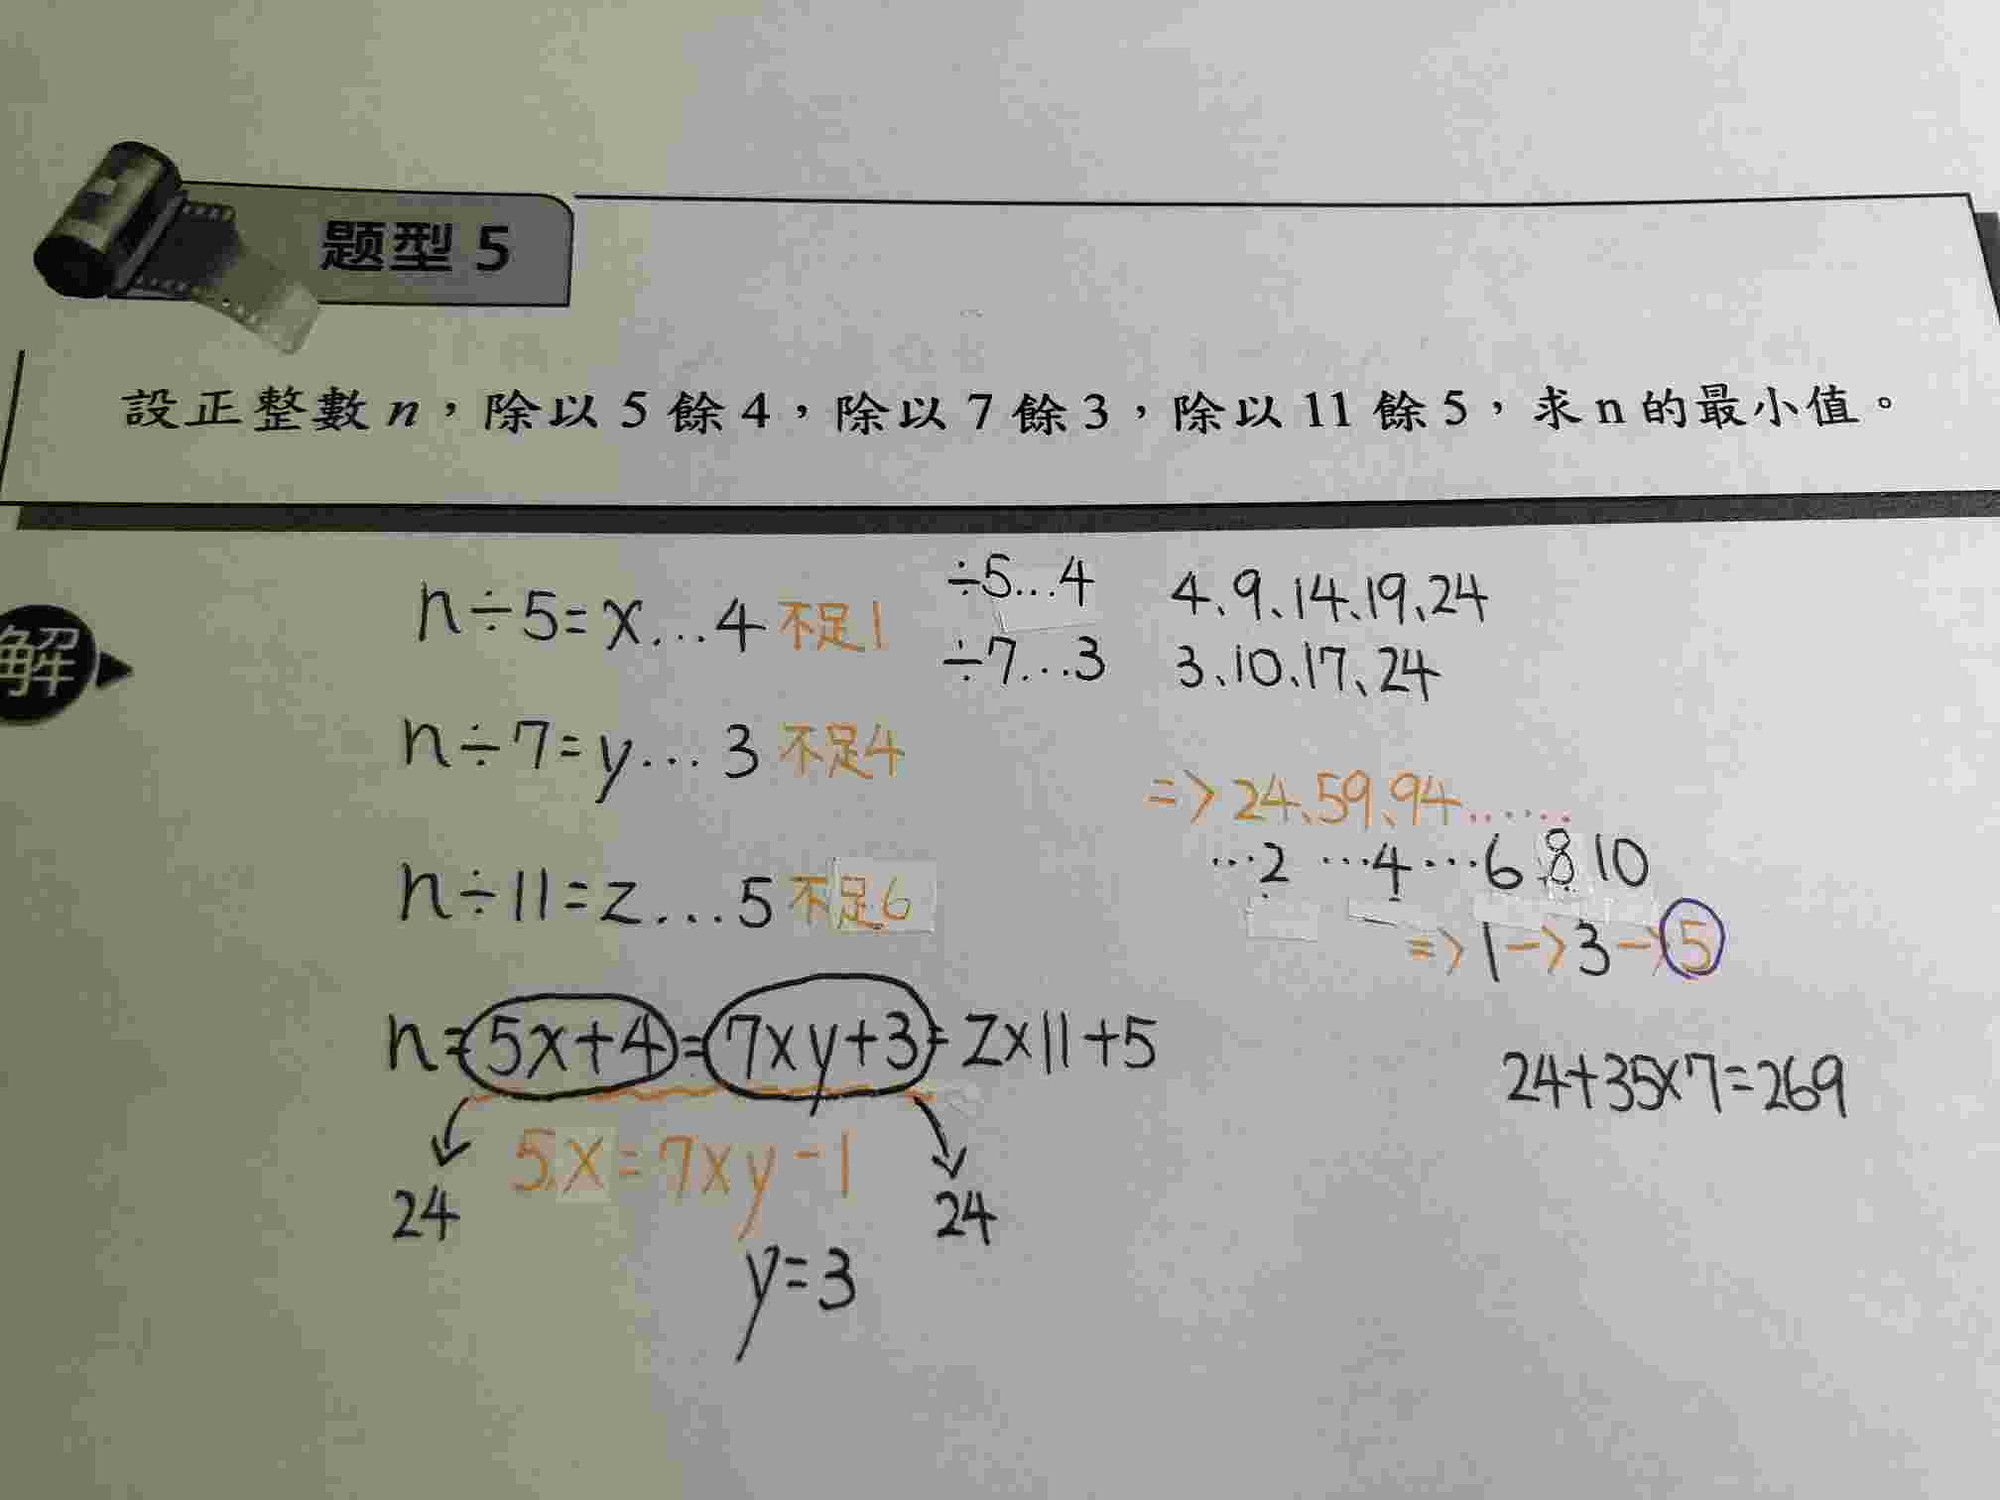 题型 5
設正整數 n，除以 5 餘 4，除以 7 餘 3，除以 11 餘 5，求 n 的最小值。
解
n÷5=x...4 不足1
n÷7=y...3 不足4
n÷11=z...5 不足6
n=5x+4=7xy+3=z×11+5
24 5x=7xy-1 24
y=3
÷5...4 4、9、14、19、24
÷7...3 3、10、17、24
=>24、59、94......
...2 ...4 ...6 8 10
=>1->3->5
24+35×7=269